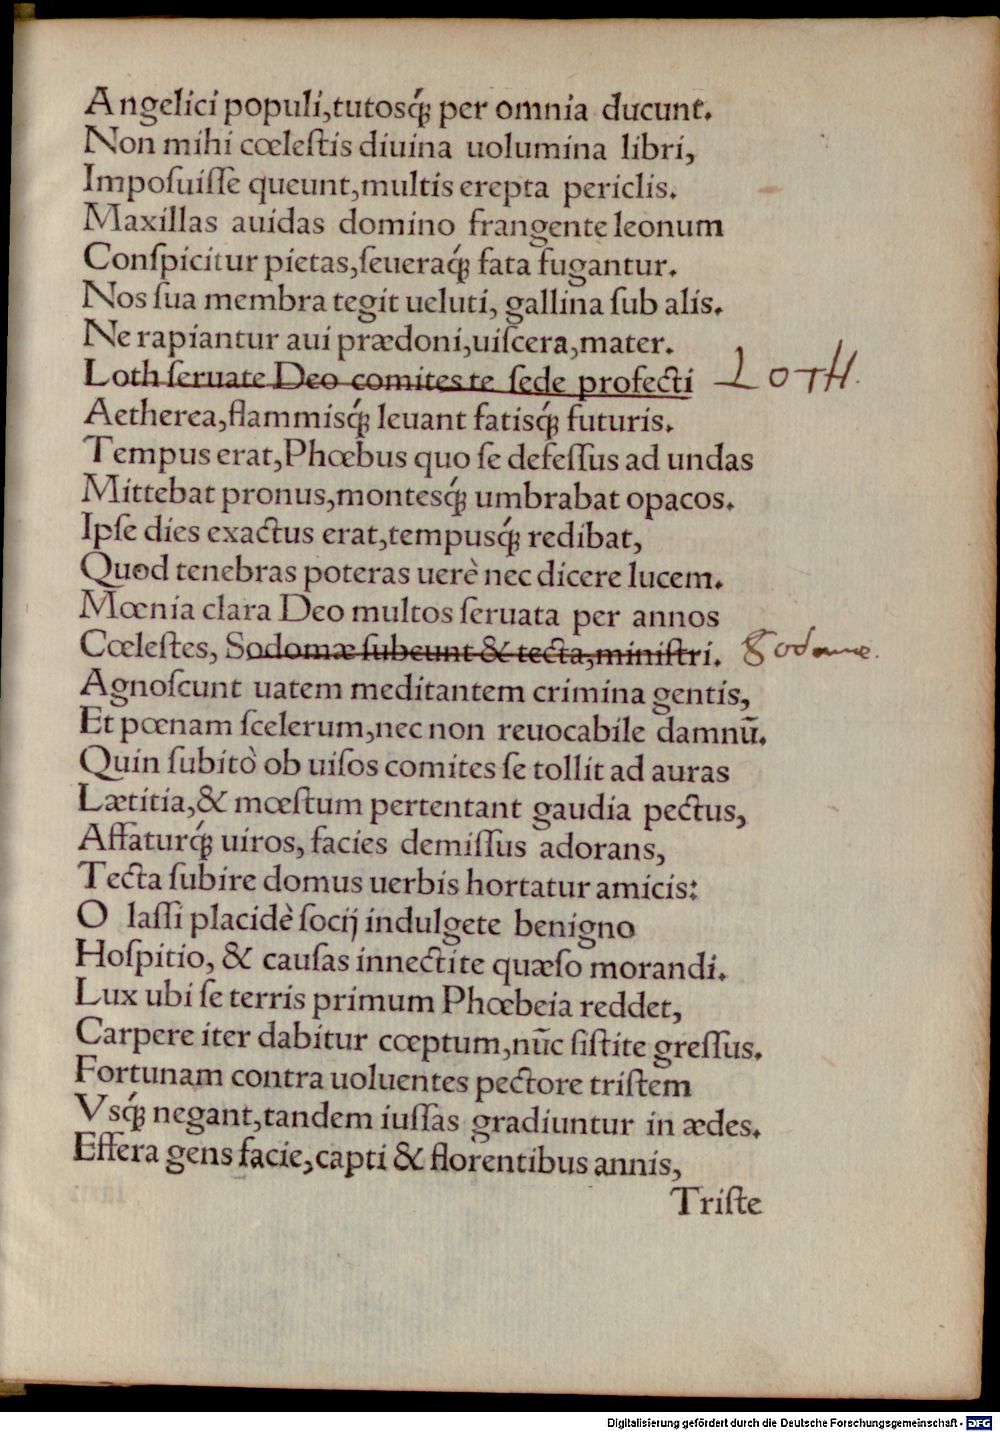 Angelici populi,tutosq́ꝫ per omnia ducunt.
Non mihi cœleſtis diuina uolumina libri,
Impoſuiſſe queunt,multis erepta periclis.
Maxillas auidas domino frangente leonum
Conſpicitur pietas,ſeueraq́ꝫ fata fugantur.
Nos ſua membra tegit ueluti, gallina ſub alis.
Ne rapiantur aui prædoni,uiſcera,mater.
Loth ſeruate Deo comites te ſede profecti LOTH.
Aetherea,flammisq́ꝫ leuant fatisq́ꝫ futuris.
Tempus erat,Phœbus quo ſe defeſſus ad undas
Mittebat pronus,montesq́ꝫ umbrabat opacos.
Ipſe dies exactus erat,tempusq́ꝫ redibat,
Quod tenebras poteras uerè nec dicere lucem.
Mœnia clara Deo multos ſeruata per annos
Cœleſtes, Sodomæ ſubeunt & tecta,miniſtri. Sodomæ.
Agnoſcunt uatem meditantem crimina gentis,
Et pœnam ſcelerum,nec non reuocabile damnū.
Quin ſubitò ob uiſos comites ſe tollit ad auras
Lætitia,& mœſtum pertentant gaudia pectus,
Affaturq́ꝫ uiros, facies demiſſus adorans,
Tecta ſubire domus uerbis hortatur amicis:
O laſſi placidè ſocij indulgete benigno
Hoſpitio, & cauſas innectite quæſo morandi.
Lux ubi ſe terris primum Phœbeia reddet,
Carpere iter dabitur cœptum,nūc ſiſtite greſſus.
Fortunam contra uoluentes pectore triſtem
Vsq́ꝫ negant,tandem iuſſas gradiuntur in ædes.
Effera gens facie,capti & florentibus annis,
Triſte
Digitalisierung gefördert durch die Deutsche Forschungsgemeinschaft - DFG